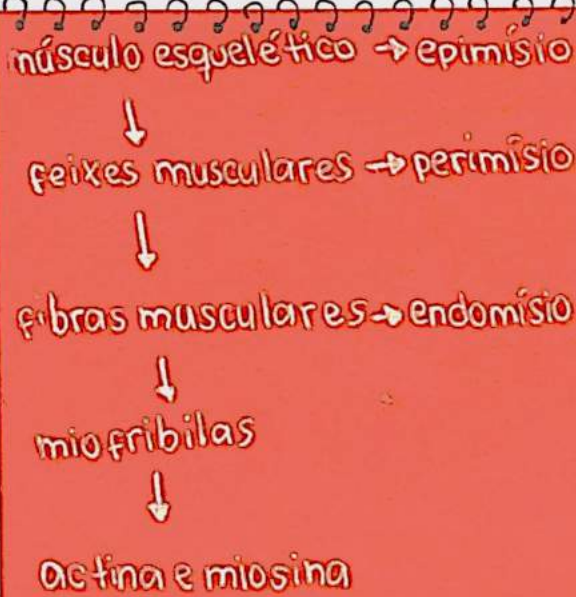 músculo esquelético → epimísio
↓
feixes musculares → perimísio
↓
fibras musculares → endomísio
↓
miofribilas
↓
actina e miosina